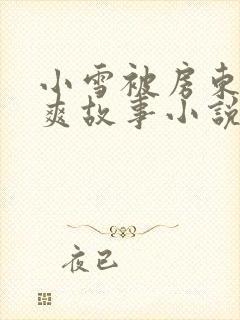 小雪被房东
爽故事小说
夜已